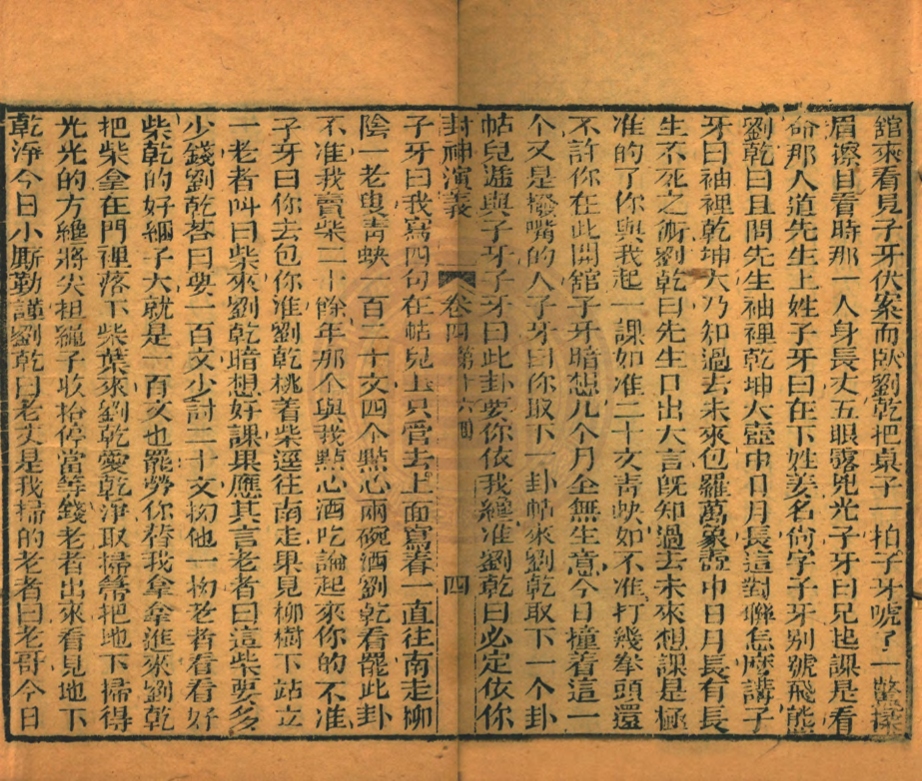 舘來看見子牙伏案而臥劉乾把桌子一拍子牙唬了一驚揉
眉擦目看時那一人身長丈五眼露兇光子牙曰兄起課是看
命那人道先生上姓子牙曰在下姓姜名尙字子牙別號飛熊
劉乾曰且問先生袖裡乾坤大壺中日月長這對聯怎麼講子
牙曰袖裡乾坤大乃知過去未來包羅萬象壺中日月長有長
生不死之術劉乾曰先生口出大言旣知過去未來想課是極
准的了你與我起一課如准二十文靑蚨如不准打幾拳頭還
不許你在此開舘子牙暗想几个月全無生意今日撞着這一
个又是撥嘴的人子牙曰你取下一卦帖來劉乾取下一个卦
帖兒遞與子牙子牙曰此卦要你依我纔准劉乾曰必定依你
封神演義 卷四第十六囬 四
子牙曰我寫四句在帖兒上只管去上面寫着一直往南走柳
陰一老叟靑蚨一百二十文四个點心兩碗酒劉乾看罷此卦
不准我賣柴二十餘年那个與我點心酒吃論起來你的不准
子牙曰你去包你准劉乾挑着柴逕往南走果見柳樹下站立
一老者叫曰柴來劉乾暗想好課果應其言老者曰這柴要多
少錢劉乾答曰要一百文少討二十文拗他一拗老者看看好
柴乾的好綑子大就是一百文也罷勞你替我拿拿進來劉乾
把柴拿在門裡落下柴葉來劉乾愛乾淨取掃箒把地下掃得
光光的方纔將尖担繩子收拾停當等錢老者出來看見地下
乾淨今日小厮勤謹劉乾曰老丈是我掃的老者曰老哥今日